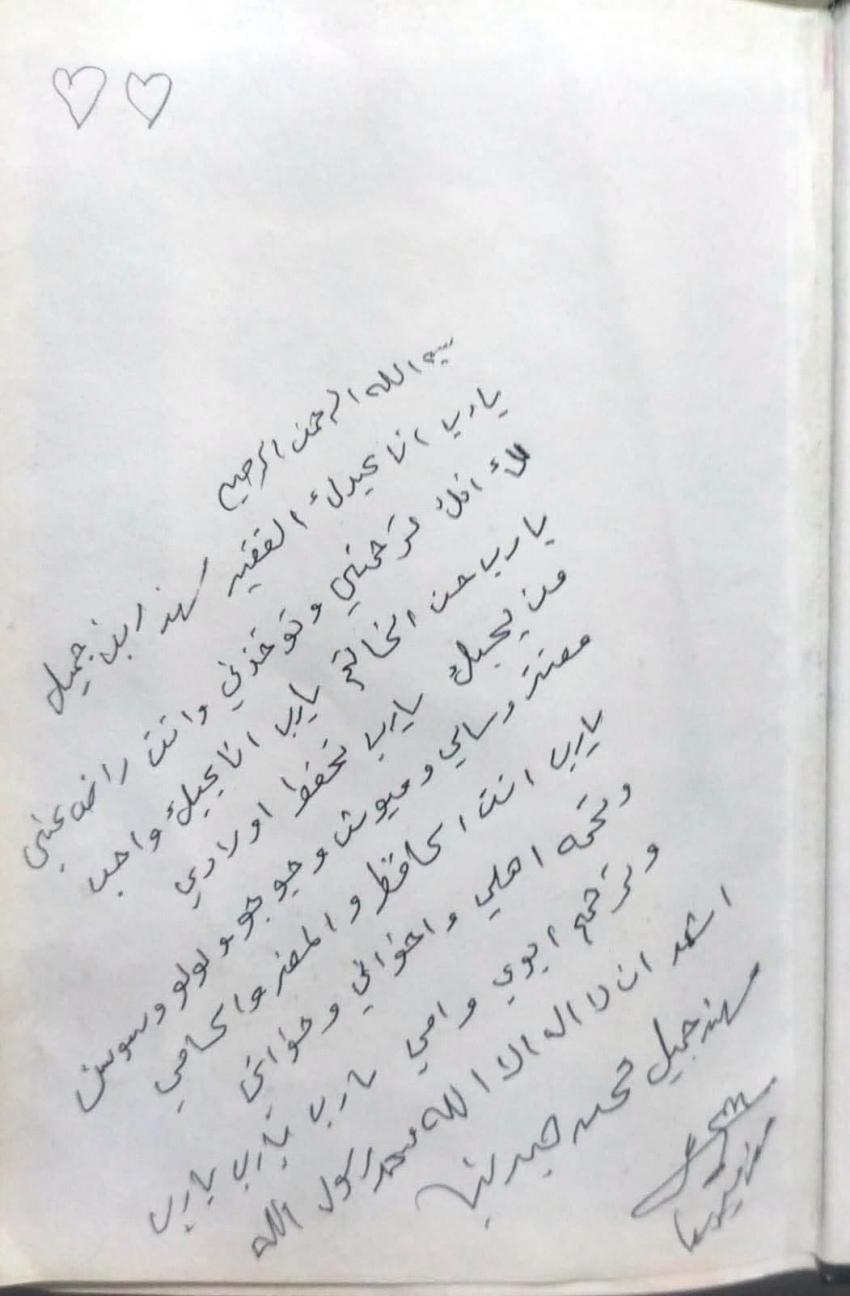 بسم الله الرحمن الرحيم
يارب انا عبدك الفقير مهند ابن جميل
انك ترحمني وتوخذني وانت راضه عني
يارب حسن الخاتم يارب انا بحبك واحب
من يحبك يارب تحفظ اولادي
معتز وسامي وميوش وجوجو ولولو وسوسن
يارب انت الحافظ و المعز والحامي
وتحمه اهلي واخواني وخواتي
وترحم ابوي وامي يارب يارب يارب
اشهد ان لا اله الا الله محمد رسول الله
مهند جميل محمد